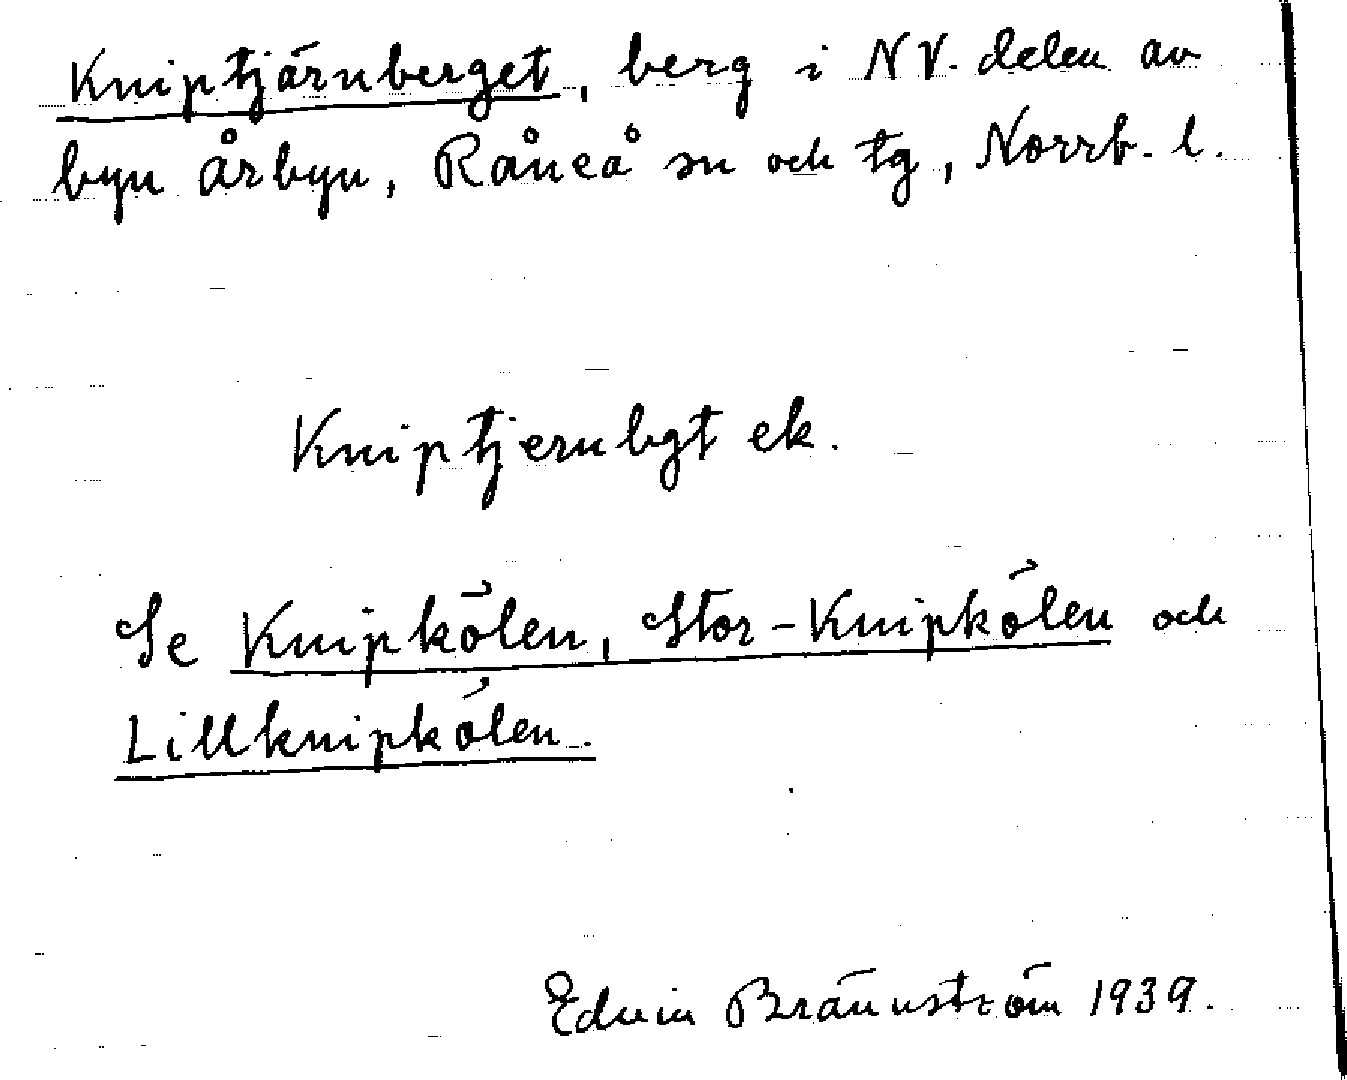 Kniptjärnberget, berg i NV. delen av
byn Årbyn, Råneå sn och tg, Norrb. l.
Kniptjernbgt ek.
Se Knipkölen, Stor-Knipkölen och
Lillknipkölen.
Edvin Brännström 1939.